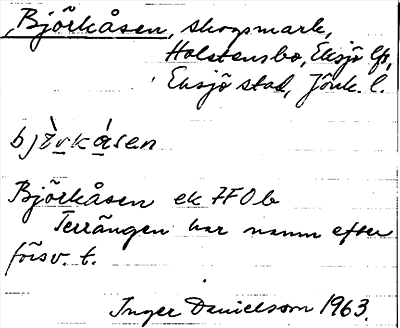 Björkåsen, skogsmark,
Holstensbo, Eksjö lfs,
Eksjö stad, Jönk. l.
Björkåsen ek 7F0b
Terrängen har namn efter
försv. t.
Inger Danielsson 1963.